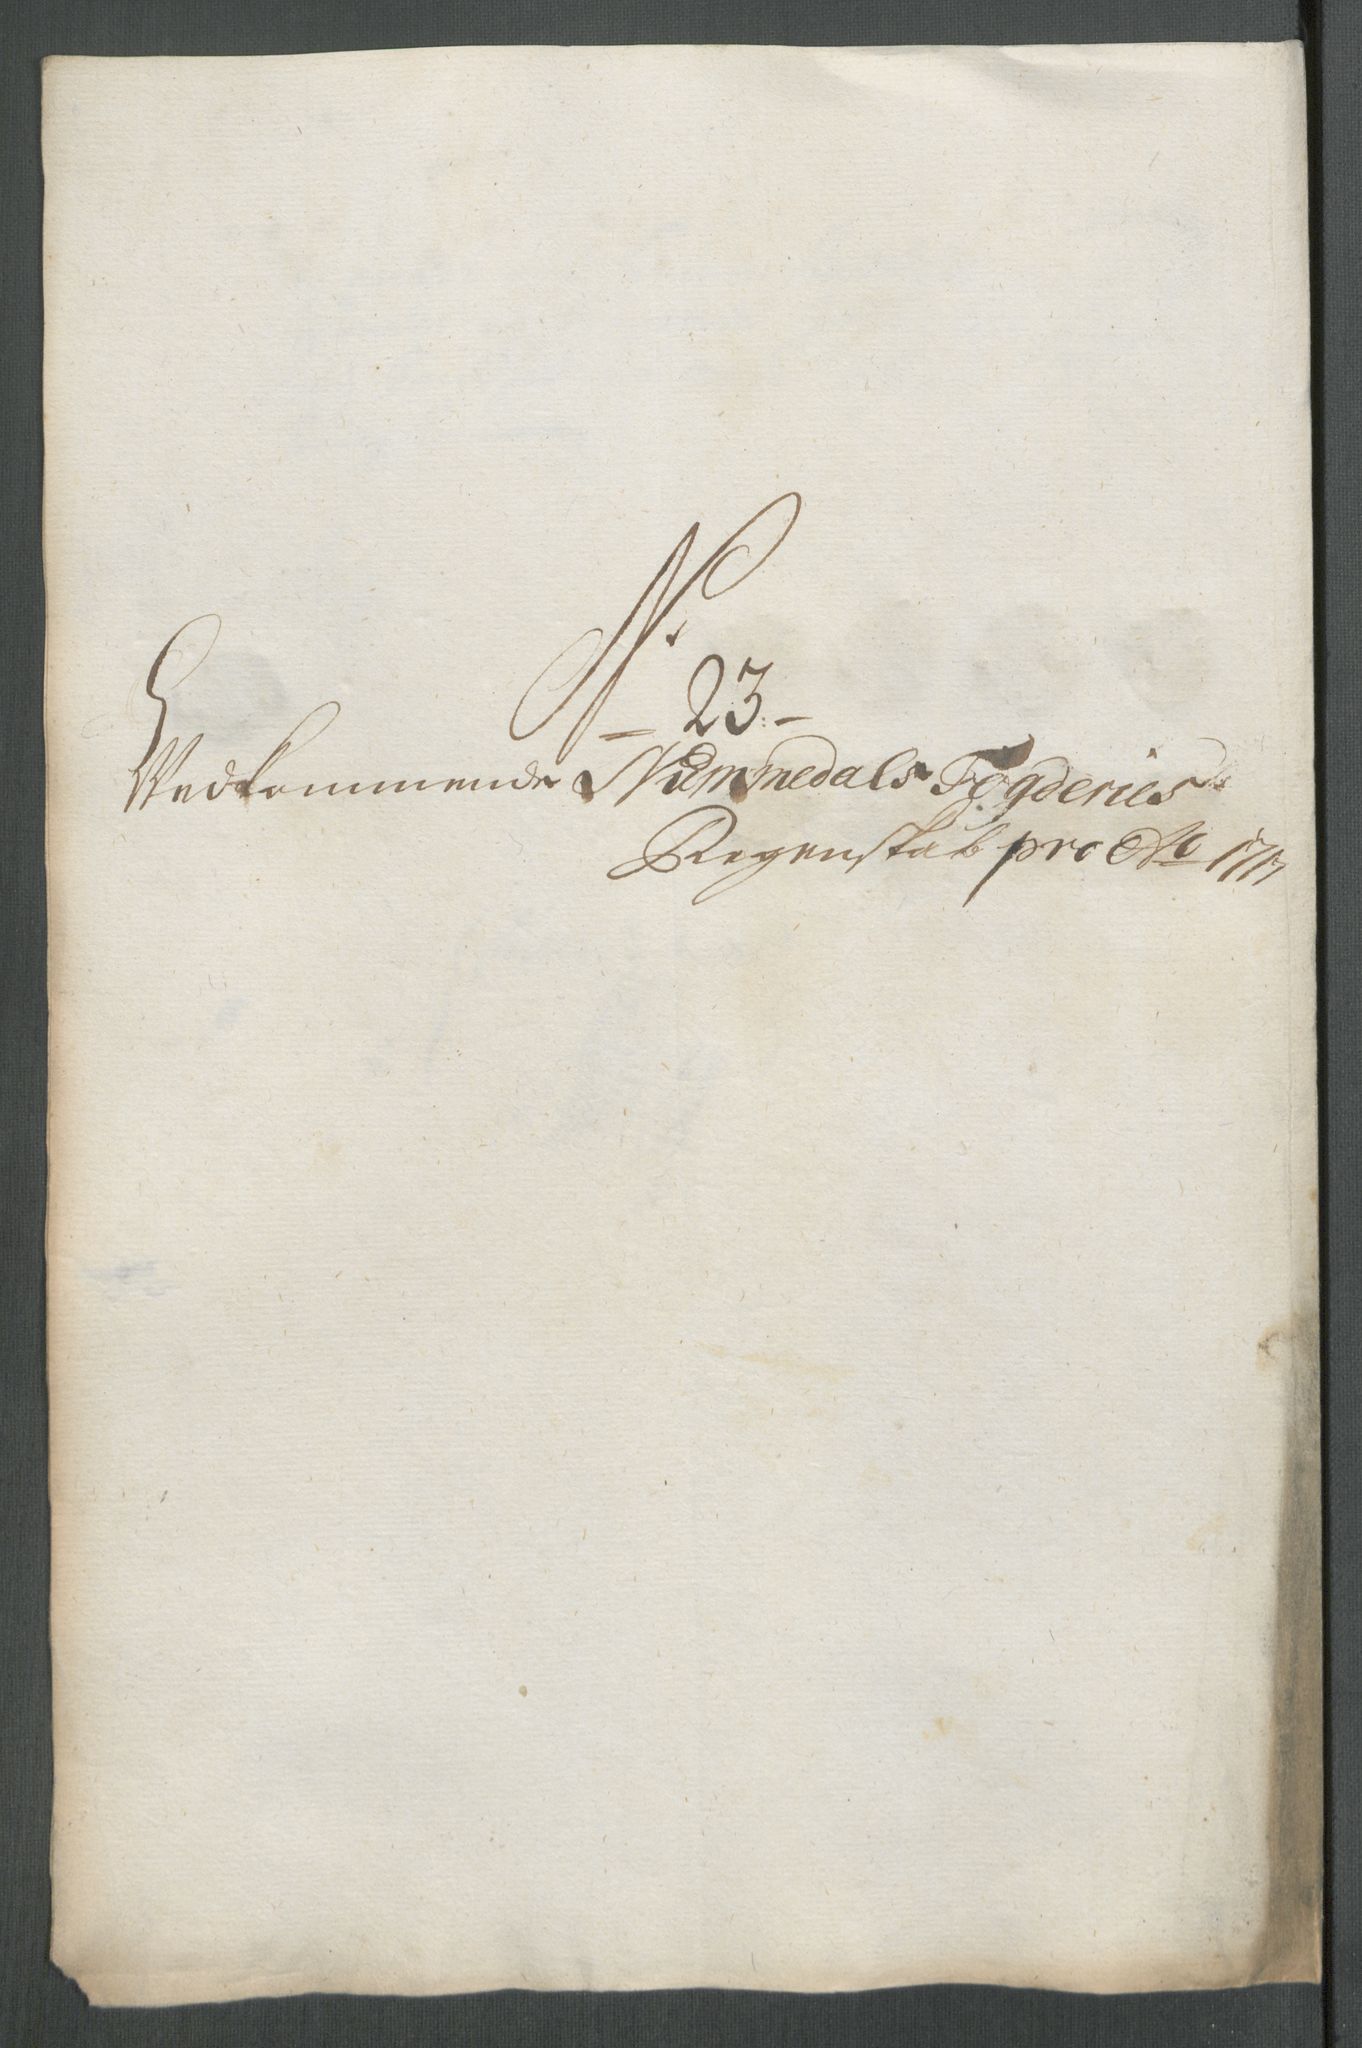 N.
- 23.-
Vedkommende Nummedals Fogderies
Regenskab pro Ao 1717